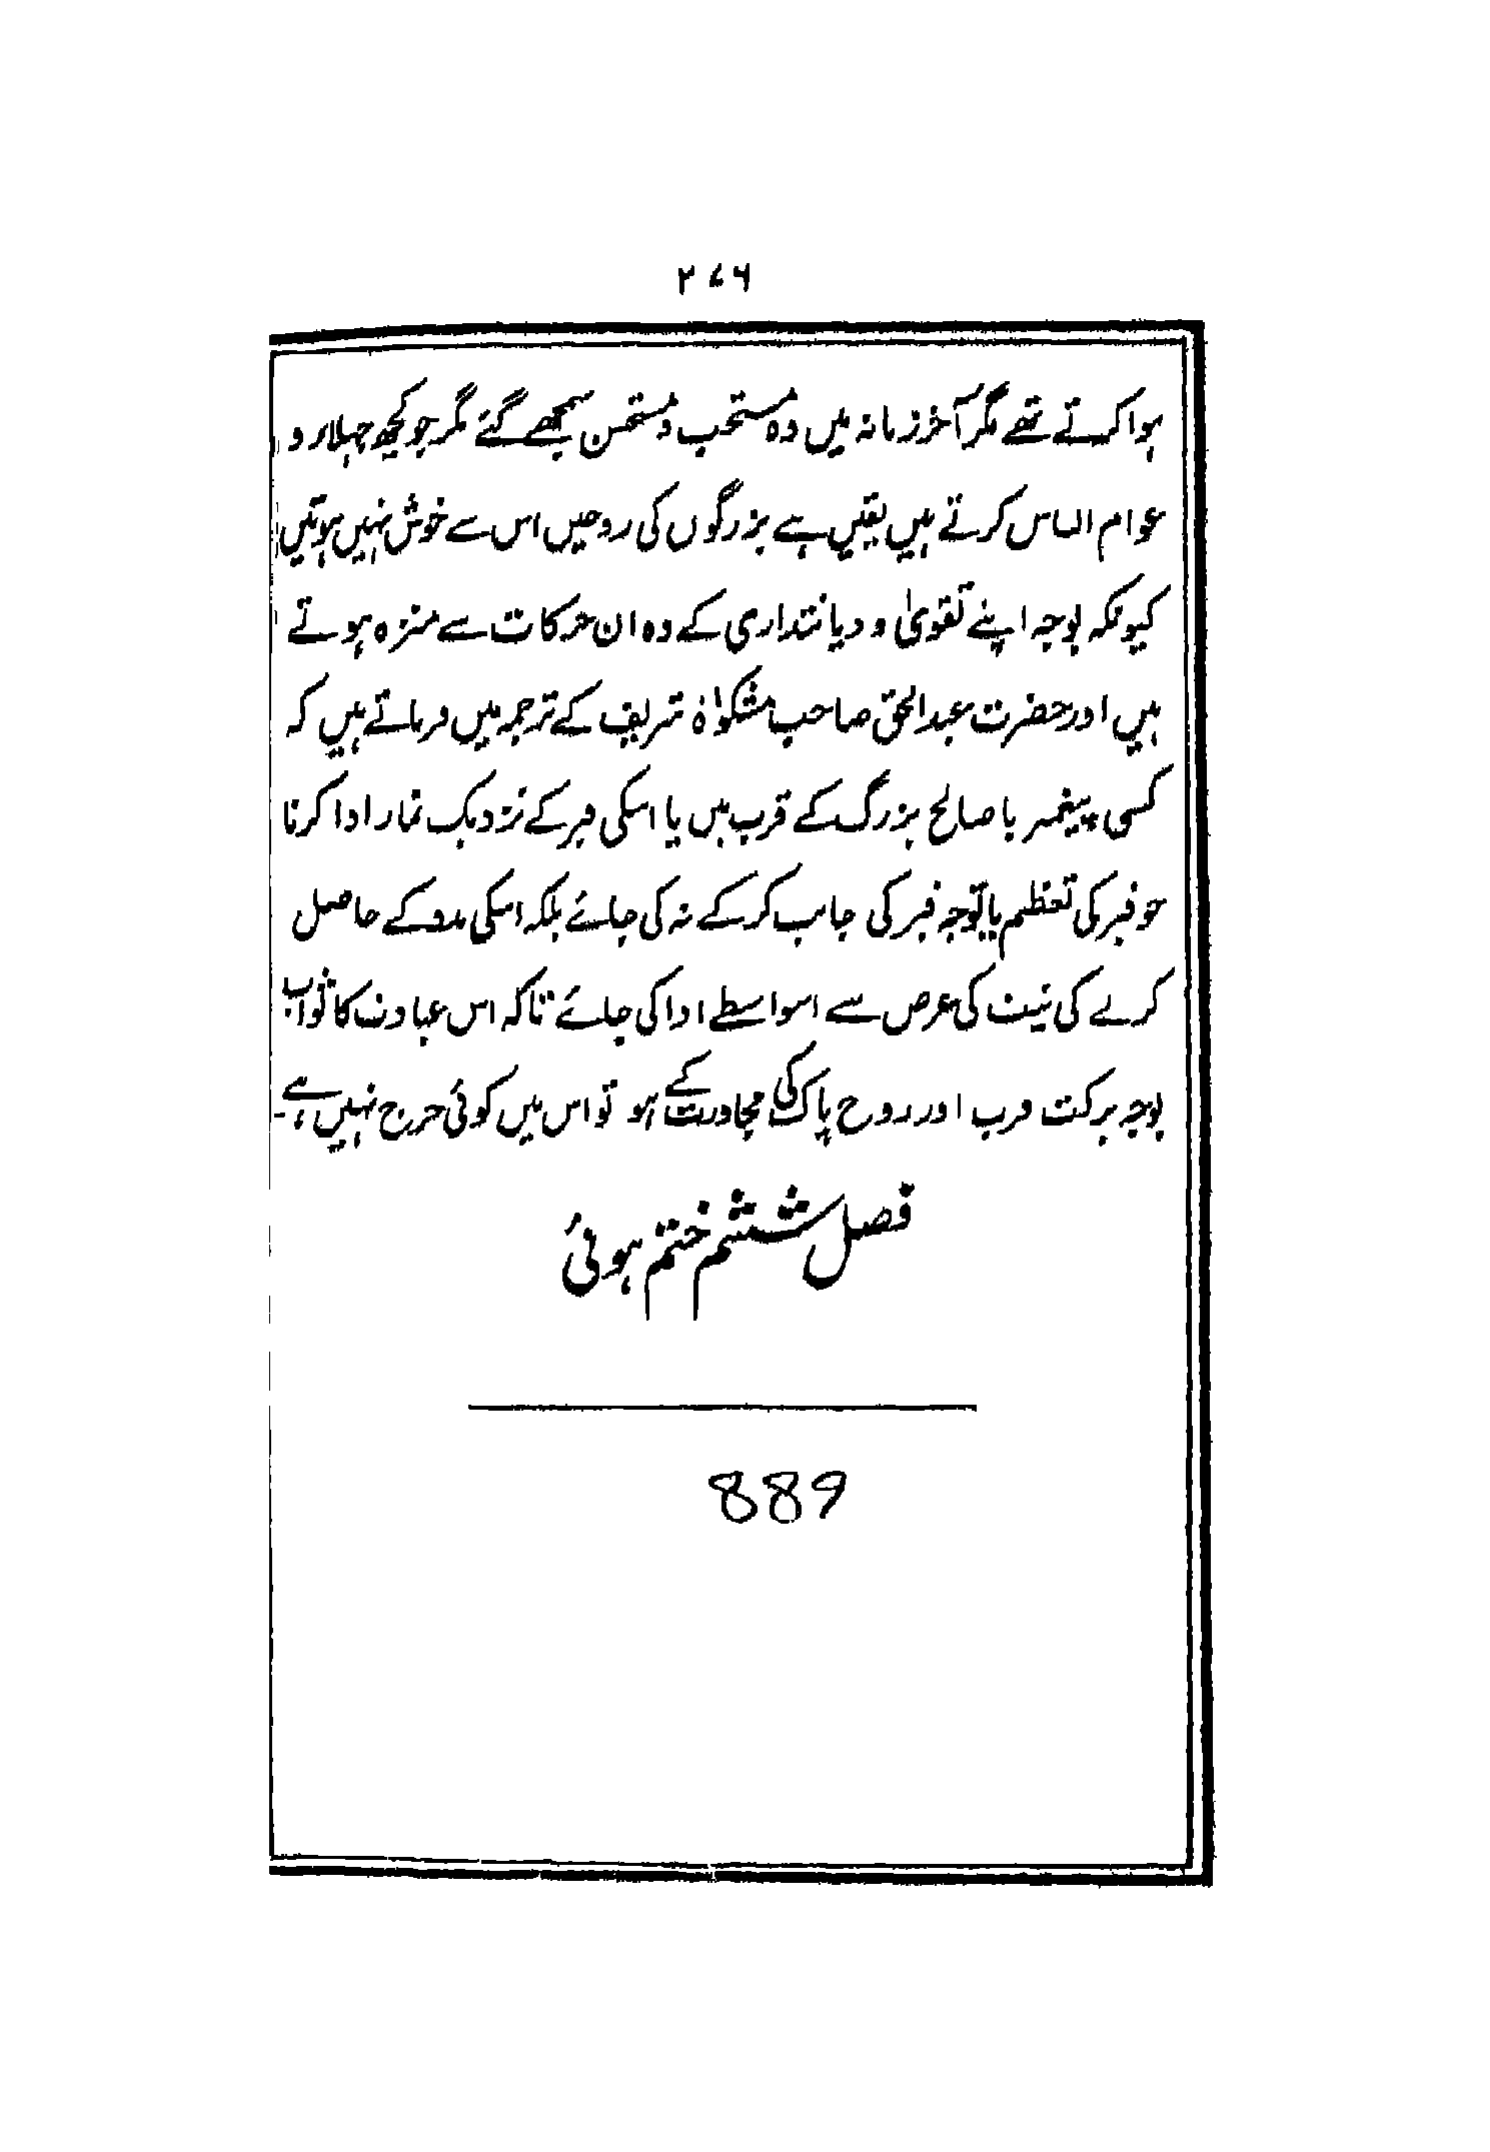 ۲۷۶
ہوا کرتے تھے مگر آخر زمانہ میں وہ مستحب و مستحسن سمجھے گئے مگر جو کچھ جہلاء و
عوام الناس کرتے ہیں یقیں ہے بزرگوں کی روحیں اس سے خوش نہیں ہوتیں
کیونکہ بوجہ اپنے تقویٰ و دیانتداری کے وہ ان حرکات سے منزہ ہوتے
ہیں اور حضرت عبدالحق صاحب مشکواۃ شریف کے ترجمہ میں فرماتے ہیں کہ
کسی پیغمبر یا صالح بزرگ کے قرب میں یا اسکی قبر کے نزدیک نماز ادا کرنا
جو قبر کی تعظیم یا توجہ قبر کی جانب کر کے نہ کی جائے بلکہ اسکی مدد کے حاصل
کرنے کی نیت کی غرض سے اسواسطے ادا کی جائے تاکہ اس عبادت کا ثواب
بوجہ برکت قرب اور روح پاک کی مجاورت کے ہو تو اس میں کوئی حرج نہیں ہے۔
فصل ششم ختم ہوئی
889